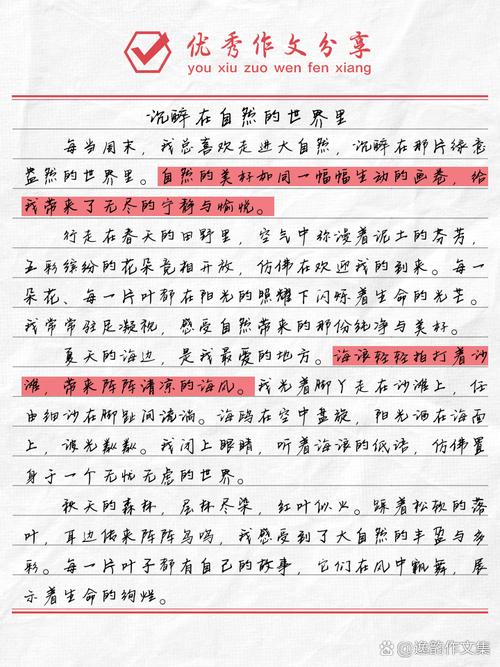 优秀作文分享
you xiu zuo wen fen xiang
沉醉在自然的世界里
每当周末，我总喜欢走进大自然，沉醉在那片绿意
盎然的世界里。自然的美好如同一幅幅生动的画卷，给
我带来了无尽的宁静与愉悦。
行走在春天的田野里，空气中弥漫着泥土的芬芳，
五彩缤纷的花朵竞相开放，仿佛在欢迎我的到来。每一
朵花、每一片叶都在阳光的照耀下闪烁着生命的光芒。
我常常驻足凝视，感受自然带来的那份纯净与美好。
夏天的海边，是我最爱的地方。海浪轻轻拍打着沙
滩，带来阵阵清凉的海风。我光着脚丫走在沙滩上，任
由细沙在脚趾间流淌。海鸥在空中盘旋，阳光洒在海面
上，波光粼粼。我闭上眼睛，听着海浪的低语，仿佛置
身于一个无忧无虑的世界。
秋天的森林，层林尽染，红叶似火。踩着松软的落
叶，耳边传来阵阵鸟鸣，我感受到了大自然的丰盈与多
彩。每一片叶子都有自己的故事，它们在风中飘舞，展
示着生命的绚烂。
逸韵作文集